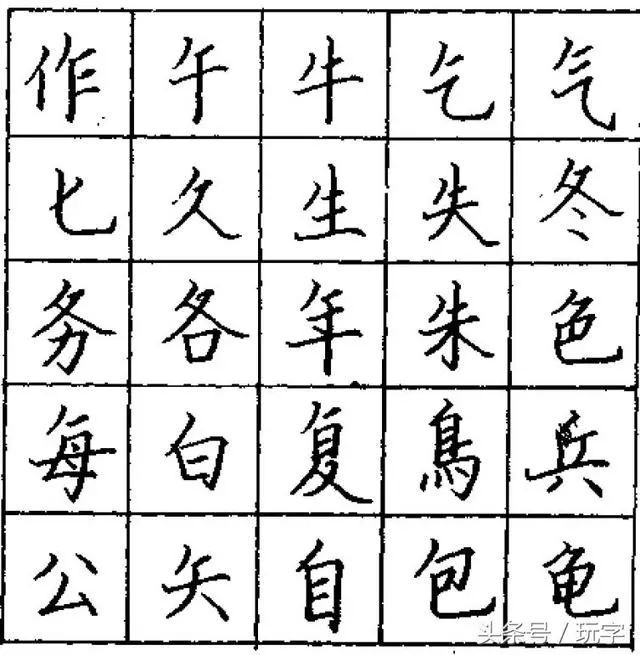 作午牛乞气
匕久生失冬
务各年朱色
每白复鳥兵
公矢自包龟
头条号／玩字